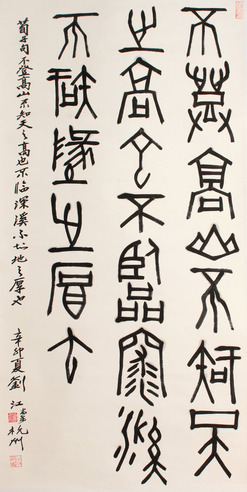 不登高山不知天
之高也不臨深谿
不知地之厚也
荀子句不登高山不知天之高也不臨深溪不知地之厚也 辛卯夏劉
江 杭州